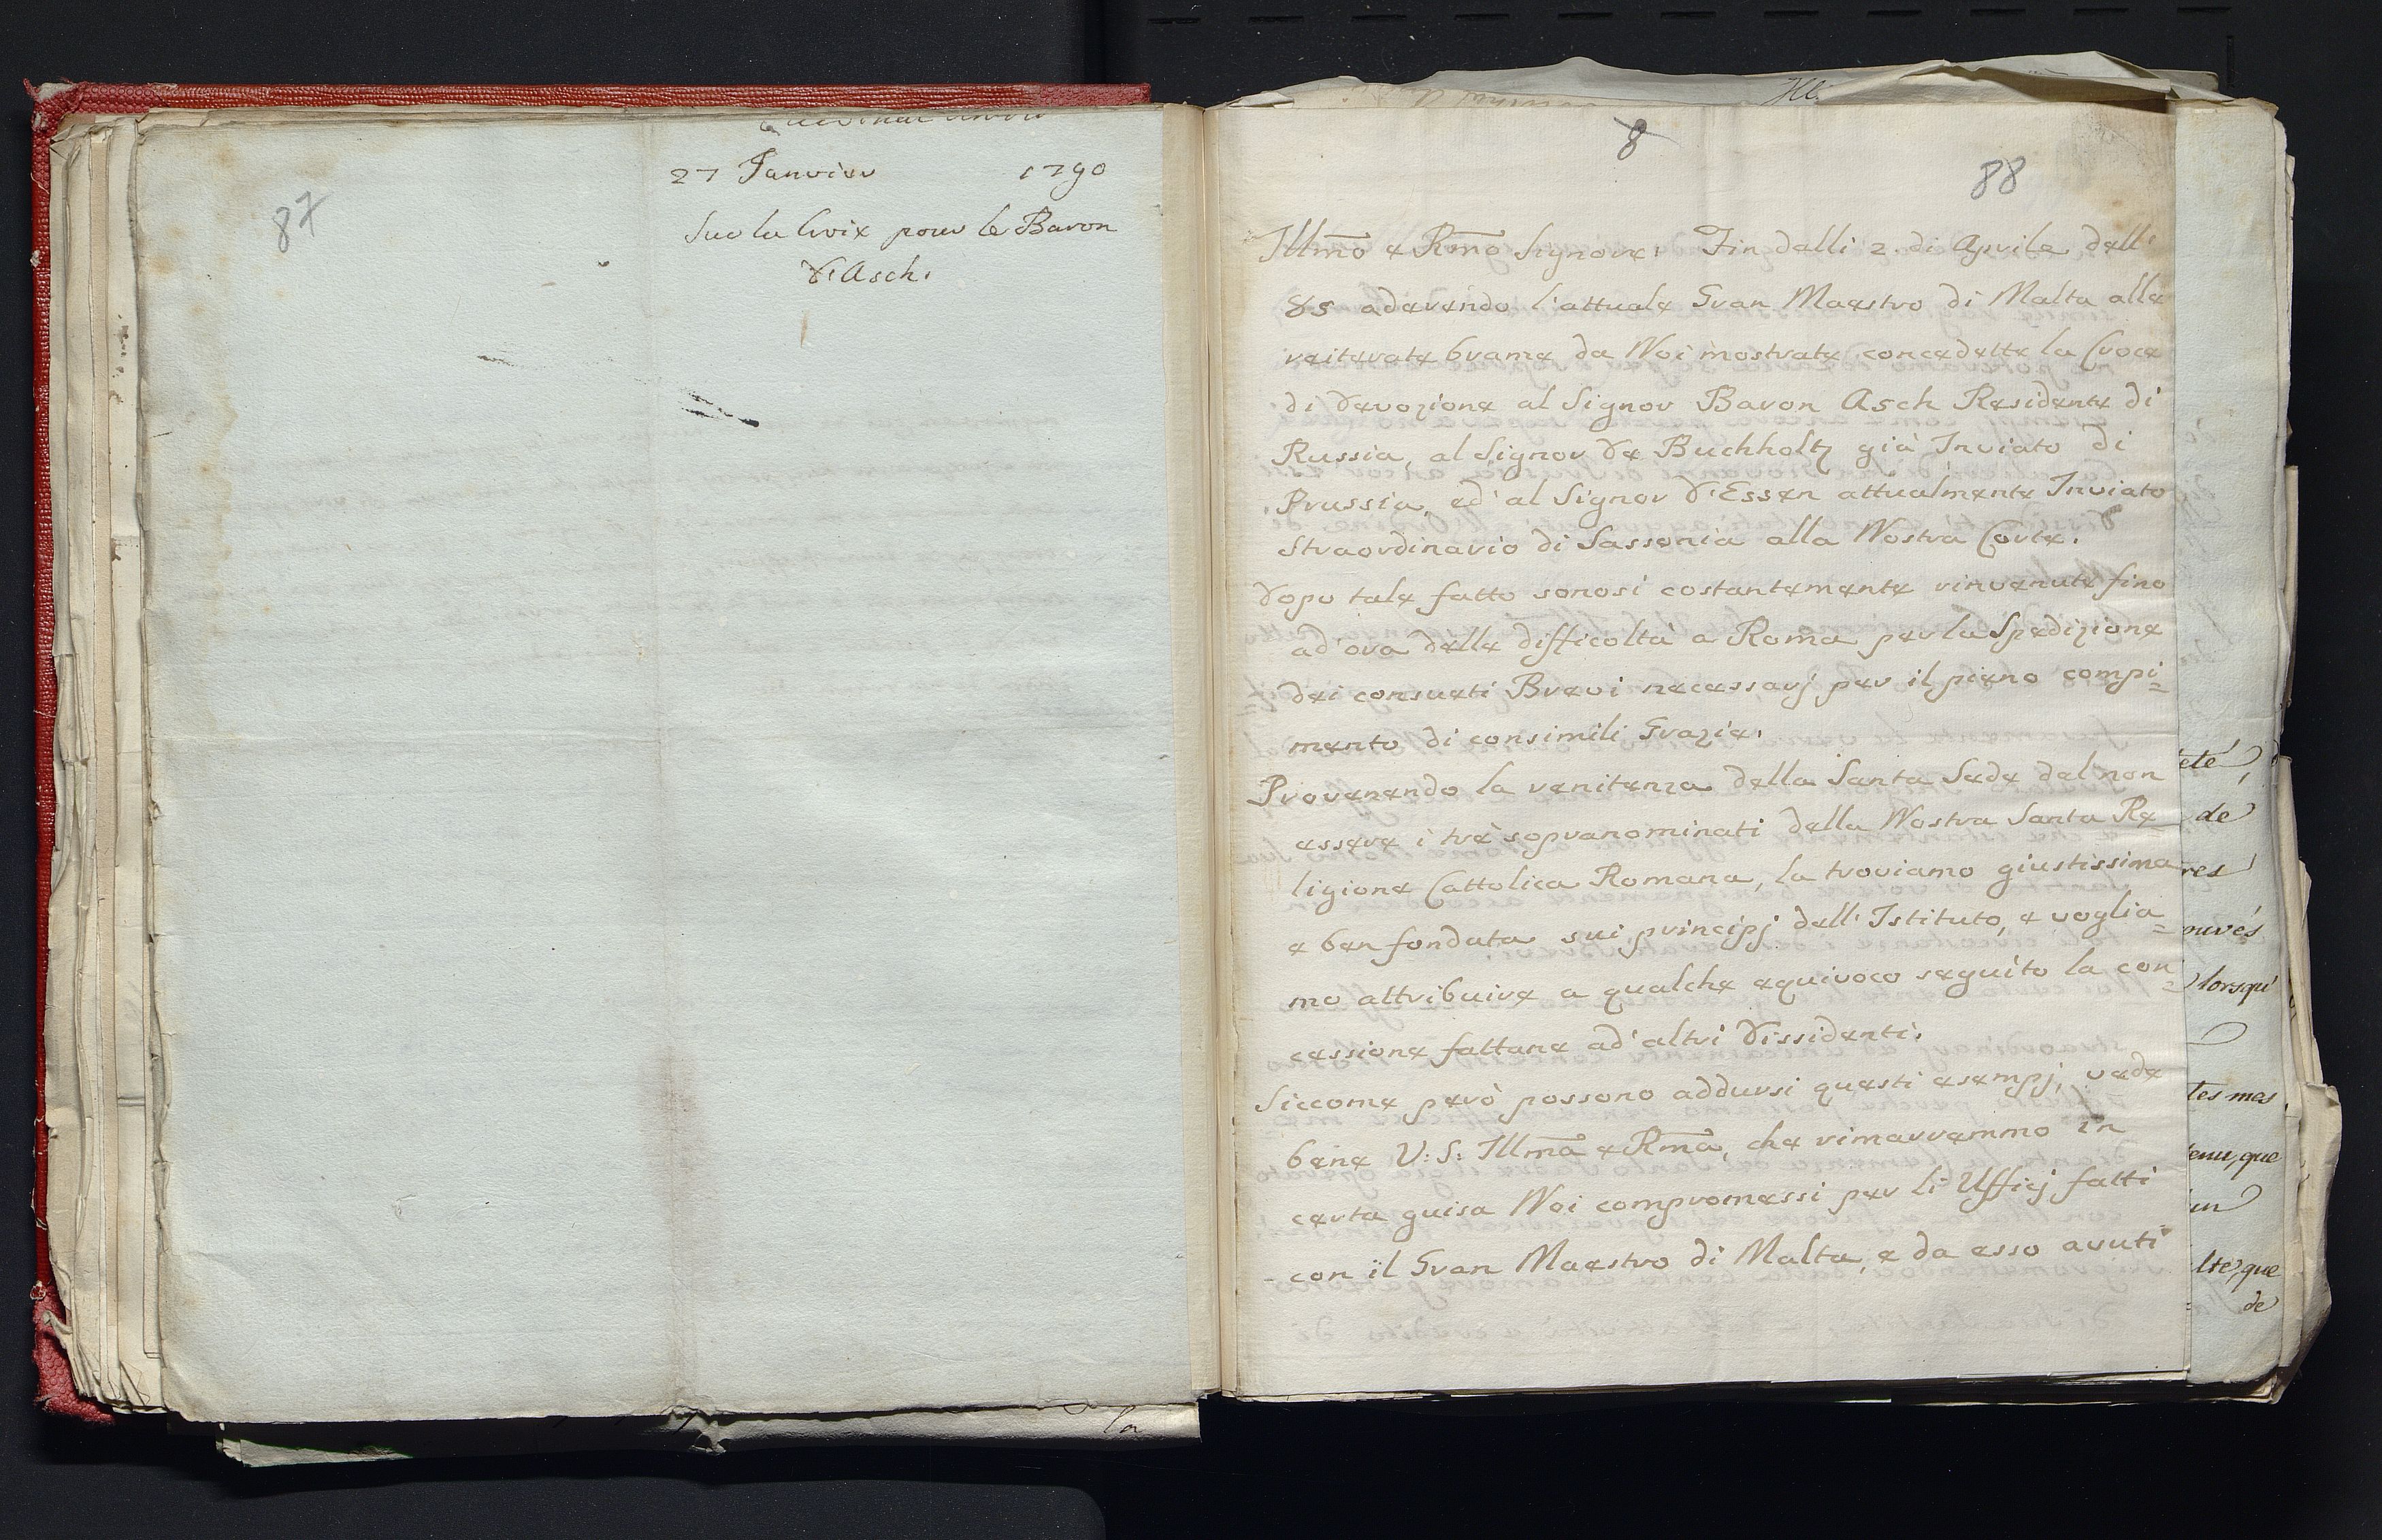 87
27 Janvier 1790
Sur la Croix pour le Baron
d'Asch.
8
88
Illm̄o e Rm̄o Signore. Fin dalli 2. di Aprile dell'
85 aderendo l'attuale Gran Maestro di Malta alle
reiterate brame da Noi mostrate concedette la Croce
di Devozione al Signor Baron Asch Residente di
Russia, al Signor De Buchholtz già Inviato di
Prussia, ed' al Signor D'Essen attualmente Inviato
Straordinario di Sassonia alla Nostra Corte.
Dopo tale fatto sonosi costantemente rinvenute fino
ad' ora delle difficoltà a Roma per la Spedizione
dei consueti Brevi necessarj per il pieno compi=
mento di consimili Grazie.
Provenendo la renitenza della Santa Sede dal non
essere i trè sopranominati della Nostra Santa Re=
ligione Cattolica Romana, la troviamo giustissima
e ben fondata sui principj dell' Istituto, e voglia=
mo attribuire a qualche equivoco seguìto la con=
cessione fattane ad' altri Dissidenti.
Siccome però possono addursi questi esempj, vede
bene V: S: Illm̄a e Rm̄a, che rimarremmo in
certa guisa Noi compromessi per li Ufficj fatti
con il Gran Maestro di Malta, e da esso avuti
eté,
de
res
ouvés
lorsqu'
tes mes
tenu, que
un
lte, que
de
la